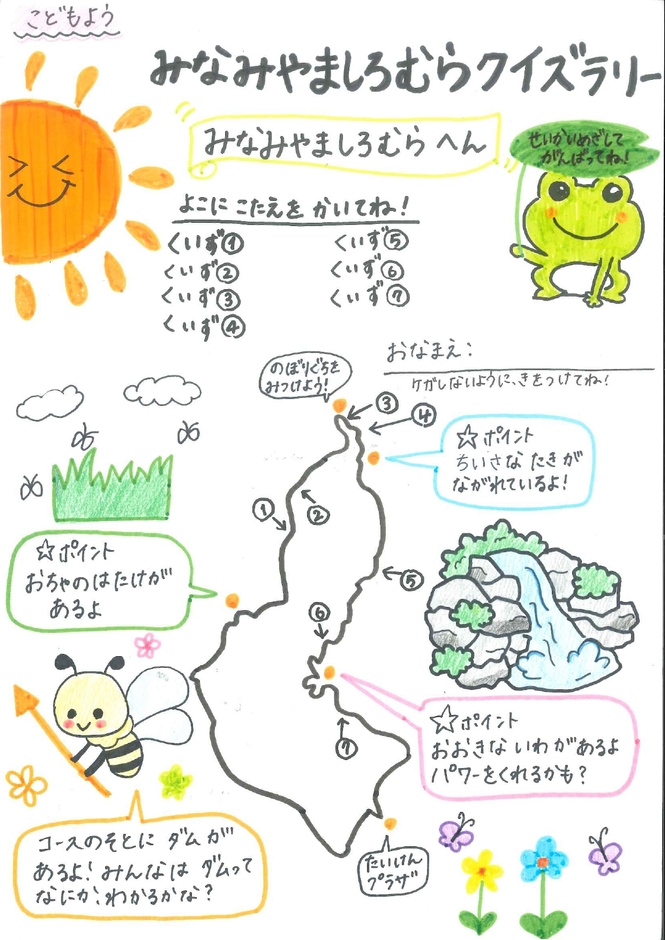 こどもよう
みなみやましろむらクイズラリー
みなみやましろむら へん
せいかいめざして
がんばってね!
よこに こたえを かいてね!
くいず①
くいず②
くいず③
くいず④
くいず⑤
くいず⑥
くいず⑦
おなまえ:
ケガしないように、きをつけてね!
のぼりぐちを
みつけよう!
③
④
☆ポイント
ちいさな たきが
ながれているよ!
①
②
☆ポイント
おちゃのはたけが
あるよ
⑤
⑥
☆ポイント
おおきな いわ があるよ
パワーをくれるかも?
⑦
コースのそとに ダムが
あるよ! みんなは ダムって
なにか、わかるかな?
たいけん
プラザ